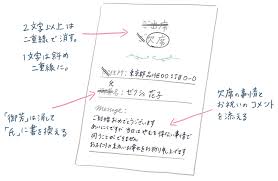 2文字以上は
二重線で消す。
1文字は斜め
二重線に。
「御芳」は消して
「氏」に書き換える
ご出席
欠席
ご住所:東京都品川区〇〇1-8-0
氏
名:ゼクシィ花子
message:
ご結婚おめでとうございます
あいにくですが 当日はやむを得ない事情で
伺うことができません
おふたりの末永いお幸せをお祈り申し上げます
欠席の事情と
お祝いのコメント
を添える